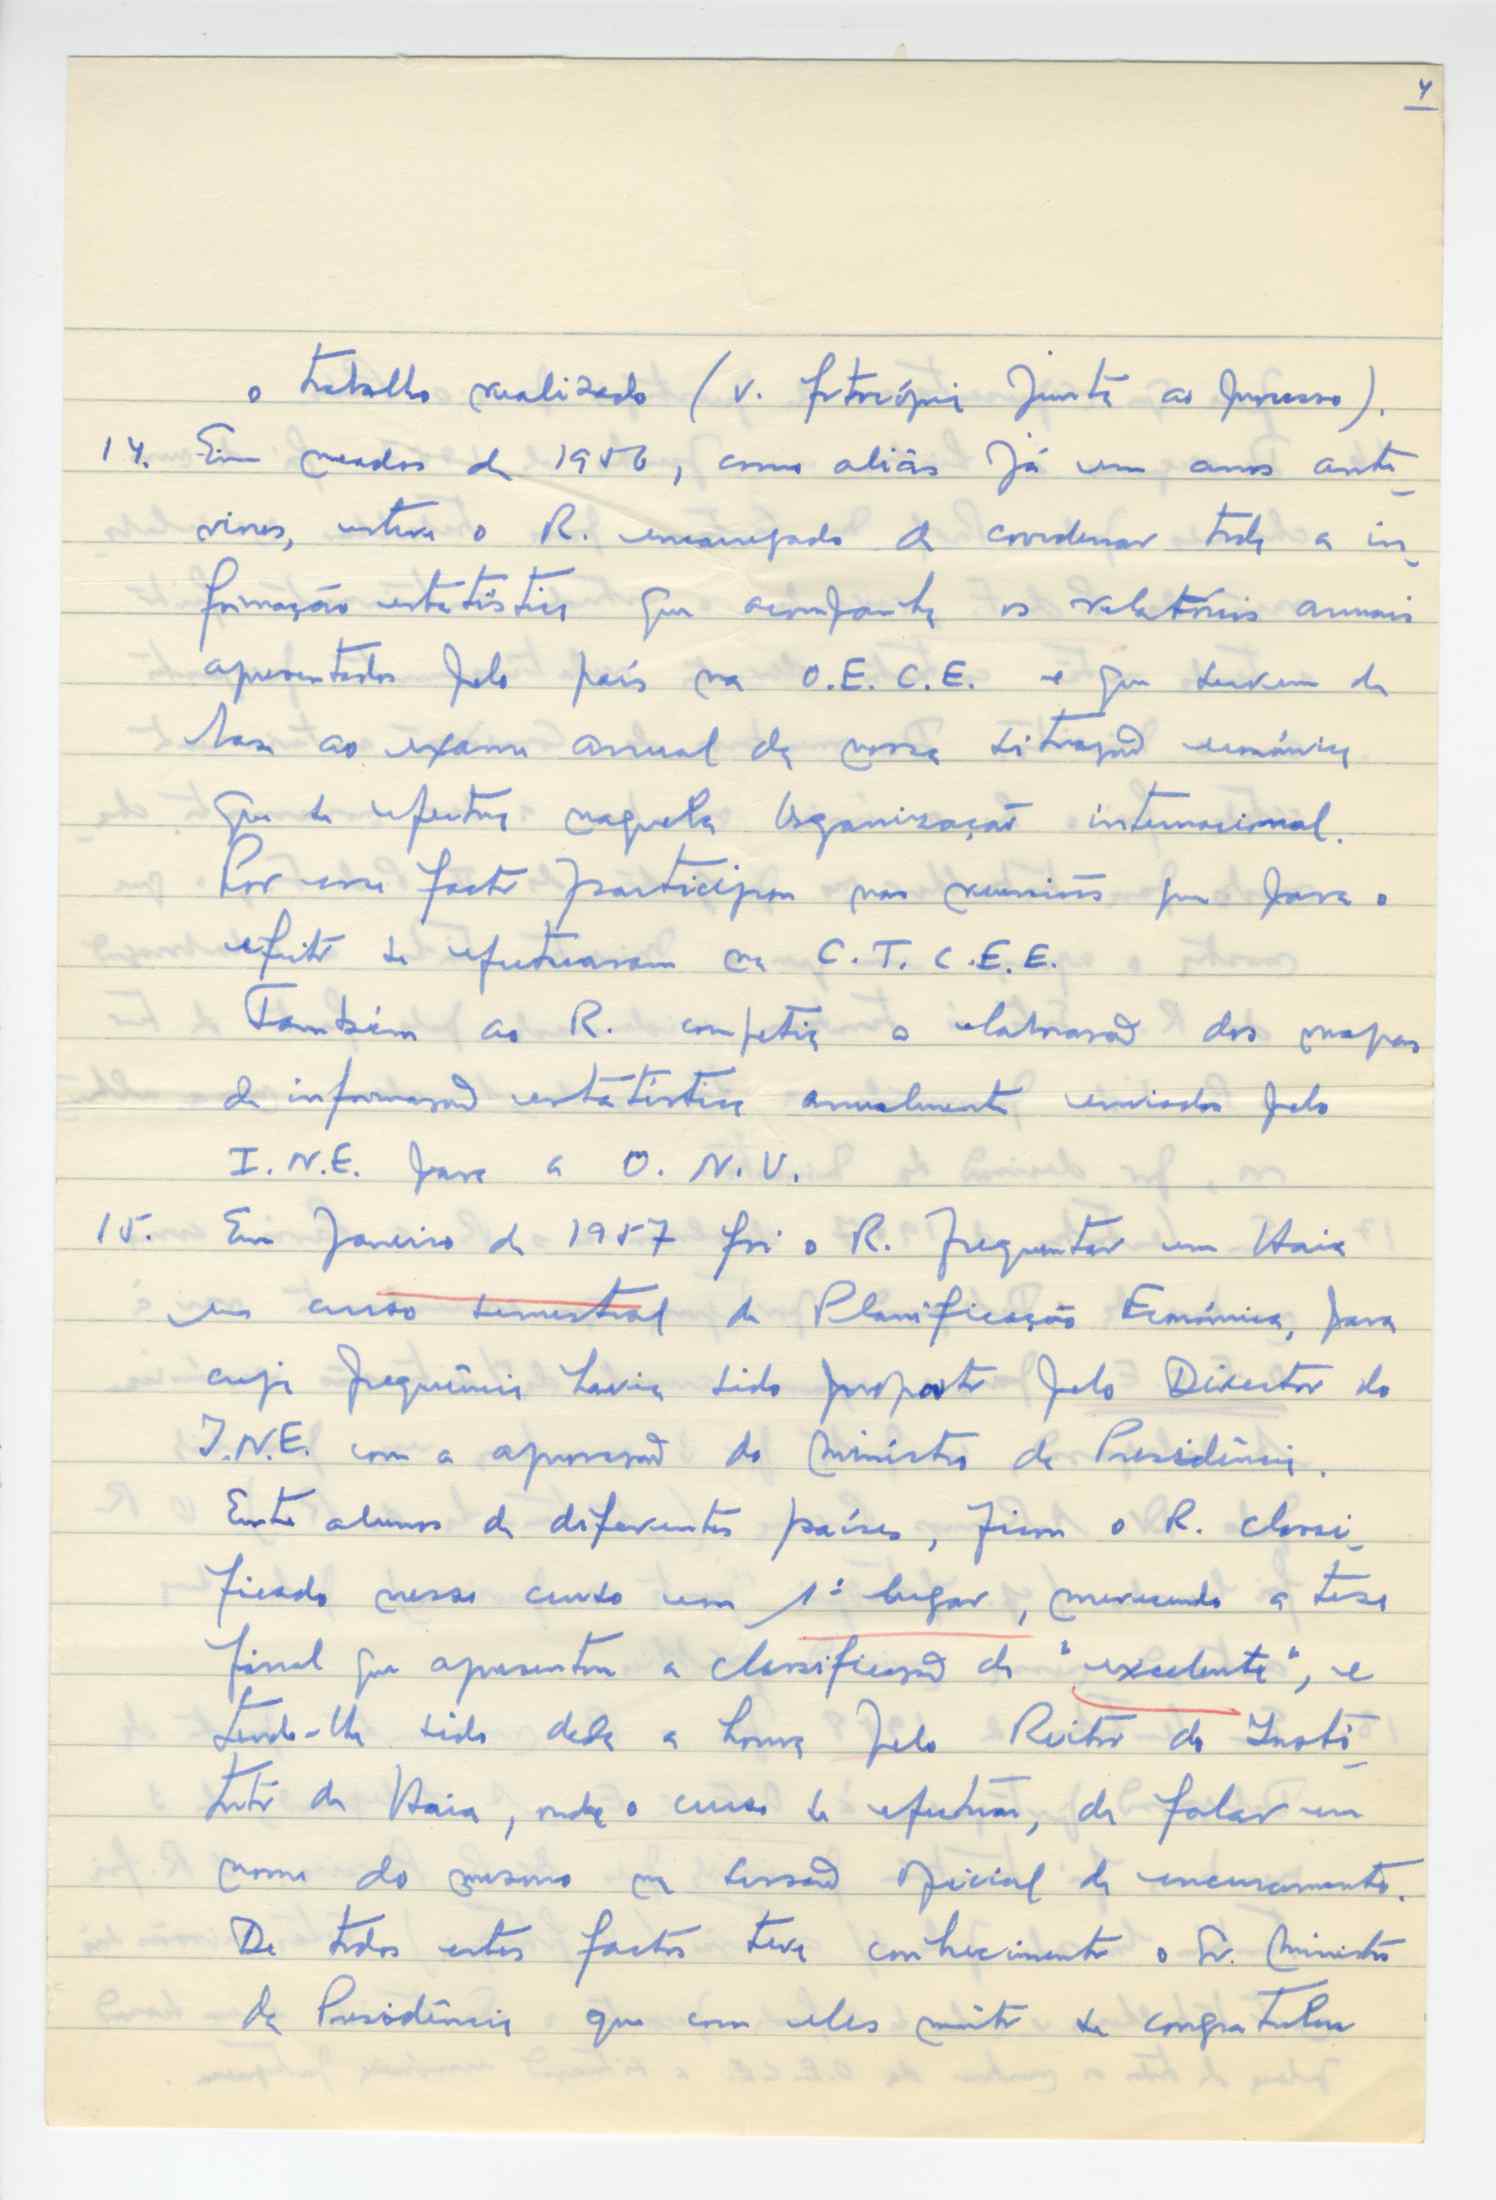 4
o trabalho realizado (v. fotocópia junta ao processo).
14. Em meados de 1956, como aliás já em anos ante-
riores, esteve o R. encarregado de coordenar toda a in-
formação estatística que acompanha os relatórios anuais
apresentados pelo país na O.E.C.E. e que servem de
base ao exame anual da nossa situação económica
que se efectua naquela Organização internacional.
Por esse facto participou nas reuniões que para o
efeito se efectuaram na C.T.C.E.E.
Também ao R. competia a elaboração dos mapas
de informação estatística anualmente enviados pelo
I.N.E. para a O.N.U.
15. Em Janeiro de 1957 foi o R. frequentar em Haia
um curso semestral de Planificação Económica, para
cuja frequência havia sido proposto pelo Director do
I.N.E. com a aprovação do Ministro da Presidência.
Entre alunos de diferentes países, ficou o R. classi-
ficado nesse curso em 1º lugar, merecendo a tese
final que apresentou a classificação de "excelente", e
tendo-lhe sido dada a honra pelo Reitor do Insti-
tuto de Haia, onde o curso se efectuou, de falar em
nome do mesmo na sessão oficial de encerramento.
De todos estes factos teve conhecimento o Sr. Ministro
da Presidência que com eles muito se congratulou